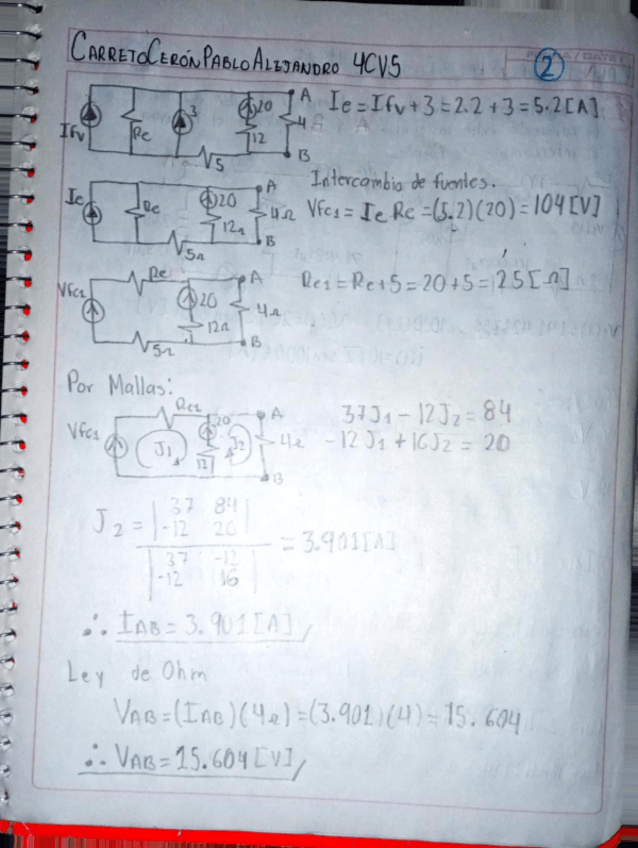 CARRETO CERÓN PABLO ALEJANDRO 4CV5
2
Ifv Re 3 20 12 A 4 B 5
Ie = Ifv + 3 = 2.2 + 3 = 5.2 [A]
Intercambio de fuentes.
Ie Re 20 12Ω A 4Ω B 5Ω
Vfc1 = Ie Re = (5.2)(20) = 104 [V]
Vfc1 Re 20 12Ω A 4Ω B 5Ω
Re1 = Re + 5 = 20 + 5 = 25 [Ω]
Por Mallas:
Vfc1 Re1 J1 20 12 J2 A 4Ω B
37J1 - 12J2 = 84
-12J1 + 16J2 = 20
J2 = | 37 84 |
| -12 20 |
| 37 -12 |
| -12 16 |
= 3.901 [A]
∴ IAB = 3.901 [A]
Ley de Ohm
VAB = (IAB)(4Ω) = (3.901)(4) = 15.604
∴ VAB = 15.604 [V]